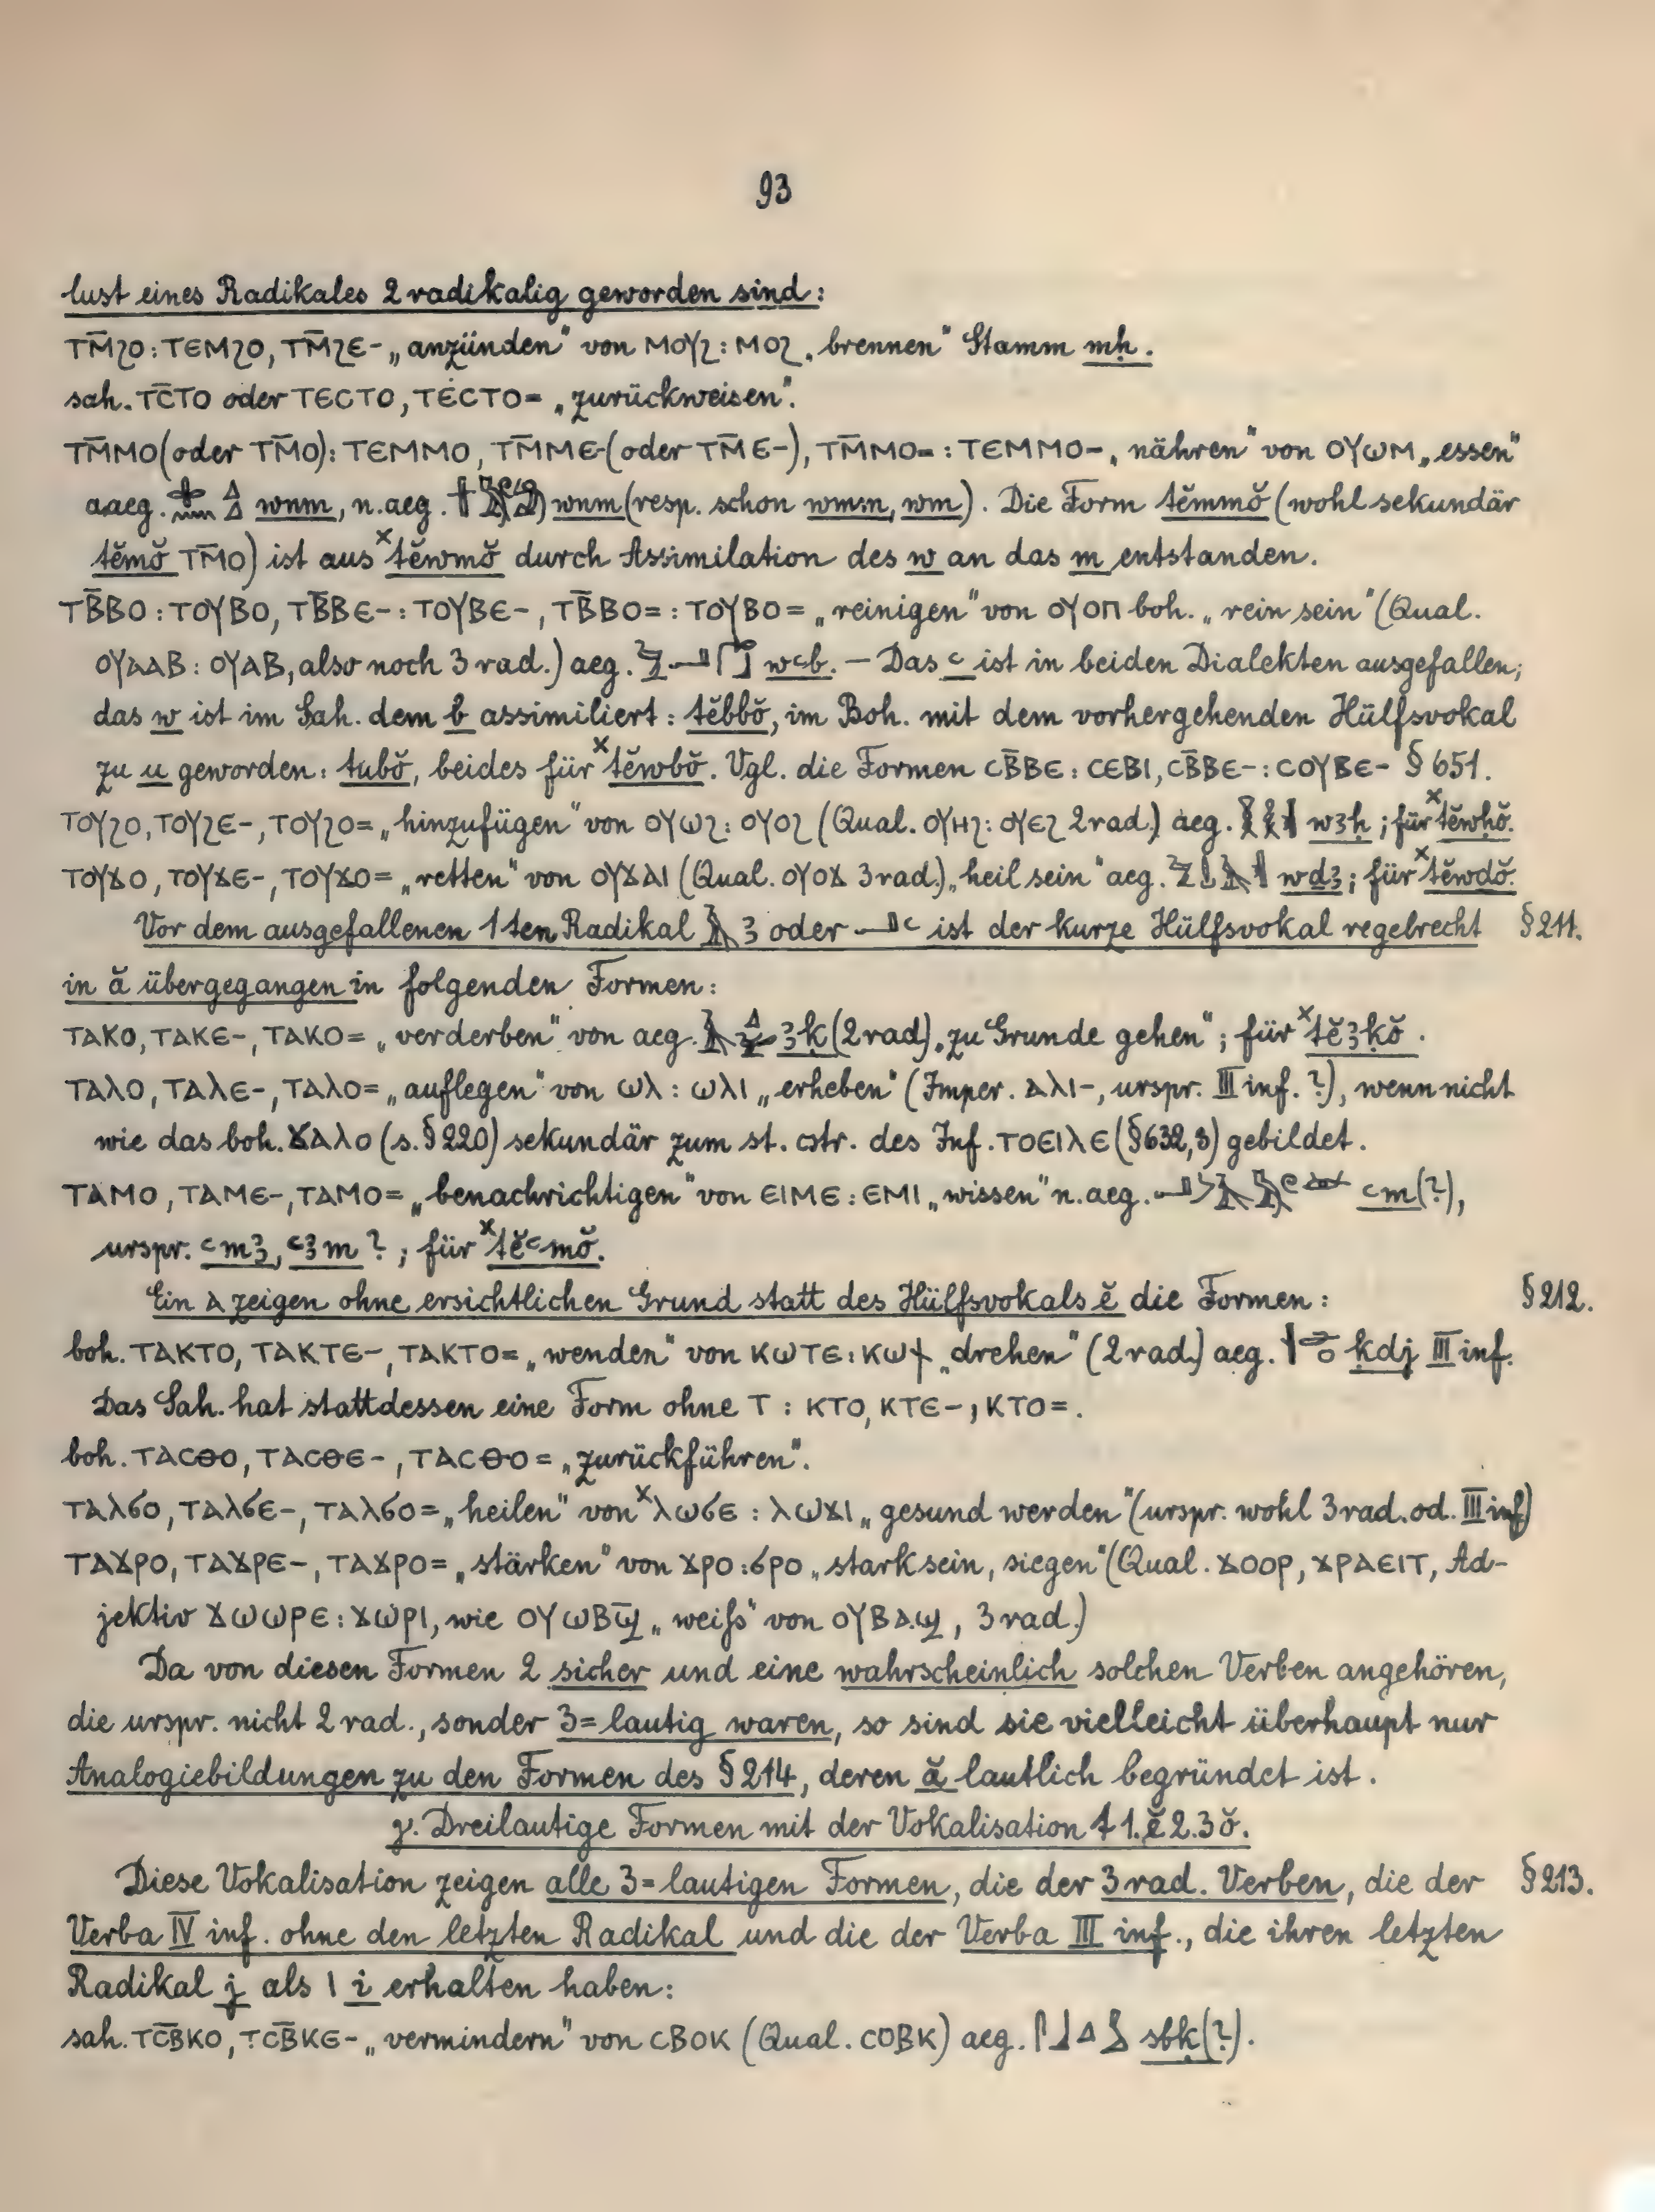 93
lust eines Radikales 2 radikalig geworden sind:
ⲧⲙ̄ϩⲟ : ⲧⲉⲙϩⲟ, ⲧⲙ̄ϩⲉ- „anzünden" von ⲙⲟⲩϩ : ⲙⲟϩ „brennen" Stamm mḥ.
sah. ⲧⲥ̄ⲧⲟ oder ⲧⲉⲥⲧⲟ, ⲧⲉⲥⲧⲟ= „zurückweisen".
ⲧⲙ̄ⲙⲟ (oder ⲧⲙ̄ⲟ): ⲧⲉⲙⲙⲟ, ⲧⲙ̄ⲙⲉ- (oder ⲧⲙ̄ⲉ-), ⲧⲙ̄ⲙⲟ= : ⲧⲉⲙⲙⲟ- „nähren" von ⲟⲩⲱⲙ „essen"
aaeg. wnm, n.aeg. wnm (resp. schon wm:n, wm). Die Form tĕmmŏ (wohl sekundär
tĕmŏ ⲧⲙ̄ⲟ) ist aus ˣtĕwmŏ durch Assimilation des w an das m entstanden.
ⲧⲃ̄ⲃⲟ : ⲧⲟⲩⲃⲟ, ⲧⲃ̄ⲃⲉ- : ⲧⲟⲩⲃⲉ-, ⲧⲃ̄ⲃⲟ= : ⲧⲟⲩⲃⲟ= „reinigen" von ⲟⲩⲟⲡ boh. „rein sein" (Qual.
ⲟⲩⲁⲁⲃ : ⲟⲩⲁⲃ, also noch 3 rad.) aeg. wꜥb. – Das ꜥ ist in beiden Dialekten ausgefallen;
das w ist im Sah. dem b assimiliert: tĕbbŏ, im Boh. mit dem vorhergehenden Hülfsvokal
zu u geworden: tubŏ, beides für ˣtĕwbŏ. Vgl. die Formen ⲥⲃ̄ⲃⲉ : ⲥⲉⲃⲓ, ⲥⲃ̄ⲃⲉ- : ⲥⲟⲩⲃⲉ- § 651.
ⲧⲟⲩϩⲟ, ⲧⲟⲩϩⲉ-, ⲧⲟⲩϩⲟ= „hinzufügen" von ⲟⲩⲱϩ : ⲟⲩⲟϩ (Qual. ⲟⲩⲏϩ : ⲟⲩⲉϩ 2rad.) aeg. wꜣḥ; für ˣtĕwḥŏ.
ⲧⲟⲩϫⲟ, ⲧⲟⲩϫⲉ-, ⲧⲟⲩϫⲟ= „retten" von ⲟⲩϫⲁⲓ (Qual. ⲟⲩⲟϫ 3rad.) „heil sein" aeg. wdꜣ; für ˣtĕwdŏ.
Vor dem ausgefallenen 1ten Radikal 𓄿 ꜣ oder 𓂝 ꜥ ist der kurze Hülfsvokal regebrecht § 211.
in ă übergegangen in folgenden Formen:
ⲧⲁⲕⲟ, ⲧⲁⲕⲉ-, ⲧⲁⲕⲟ= „verderben" von aeg. ꜣḳ (2rad) „zu Grunde gehen"; für ˣtĕꜣḳŏ.
ⲧⲁⲗⲟ, ⲧⲁⲗⲉ-, ⲧⲁⲗⲟ= „auflegen" von ⲱⲗ : ⲱⲗⲓ „erheben" (Imper. ⲁⲗⲓ-, urspr. III inf. ?), wenn nicht
wie das boh. ϫⲁⲗⲟ (s. § 220) sekundär zum st. cstr. des Inf. ⲧⲟⲉⲓⲗⲉ (§ 632,3) gebildet.
ⲧⲁⲙⲟ, ⲧⲁⲙⲉ-, ⲧⲁⲙⲟ= „benachrichtigen" von ⲉⲓⲙⲉ : ⲉⲙⲓ „wissen" n.aeg. ꜥm(?),
urspr. ꜥmꜣ, ꜥꜣm ?; für ˣtĕꜥmŏ.
Ein ⲁ zeigen ohne ersichtlichen Grund statt des Hülfsvokals ĕ die Formen: § 212.
boh. ⲧⲁⲕⲧⲟ, ⲧⲁⲕⲧⲉ-, ⲧⲁⲕⲧⲟ= „wenden" von ⲕⲱⲧⲉ : ⲕⲱϯ „drehen" (2rad.) aeg. ḳdj III inf.
Das Sah. hat stattdessen eine Form ohne ⲧ : ⲕⲧⲟ, ⲕⲧⲉ-, ⲕⲧⲟ=.
boh. ⲧⲁⲥⲑⲟ, ⲧⲁⲥⲑⲉ-, ⲧⲁⲥⲑⲟ= „zurückführen".
ⲧⲁⲗϭⲟ, ⲧⲁⲗϭⲉ-, ⲧⲁⲗϭⲟ= „heilen" von ˣⲗⲱϭⲉ : ⲗⲱϫⲓ „gesund werden" (urspr. wohl 3rad. od. III inf)
ⲧⲁϫⲣⲟ, ⲧⲁϫⲣⲉ-, ⲧⲁϫⲣⲟ= „stärken" von ϫⲣⲟ : ϭⲣⲟ „stark sein, siegen" (Qual. ϫⲟⲟⲣ, ϫⲣⲁⲉⲓⲧ, Ad-
jektiv ϫⲱⲱⲣⲉ : ϫⲱⲣⲓ, wie ⲟⲩⲱⲃϣ̄ „weiß" von ⲟⲩⲃⲁϣ, 3 rad.)
Da von diesen Formen 2 sicher und eine wahrscheinlich solchen Verben angehören,
die urspr. nicht 2 rad., sonder 3=lautig waren, so sind sie vielleicht überhaupt nur
Analogiebildungen zu den Formen des § 214, deren ă lautlich begründet ist.
γ. Dreilautige Formen mit der Vokalisation t 1.ĕ 2.3 ŏ.
Diese Vokalisation zeigen alle 3=lautigen Formen, die der 3 rad. Verben, die der § 213.
Verba IV inf. ohne den letzten Radikal und die der Verba III inf., die ihren letzten
Radikal j als ⲓ i erhalten haben:
sah. ⲧⲥⲃ̄ⲕⲟ, ⲧⲥⲃ̄ⲕⲉ- „vermindern" von ⲥⲃⲟⲕ (Qual. ⲥⲟⲃⲕ) aeg. sbḳ(?).